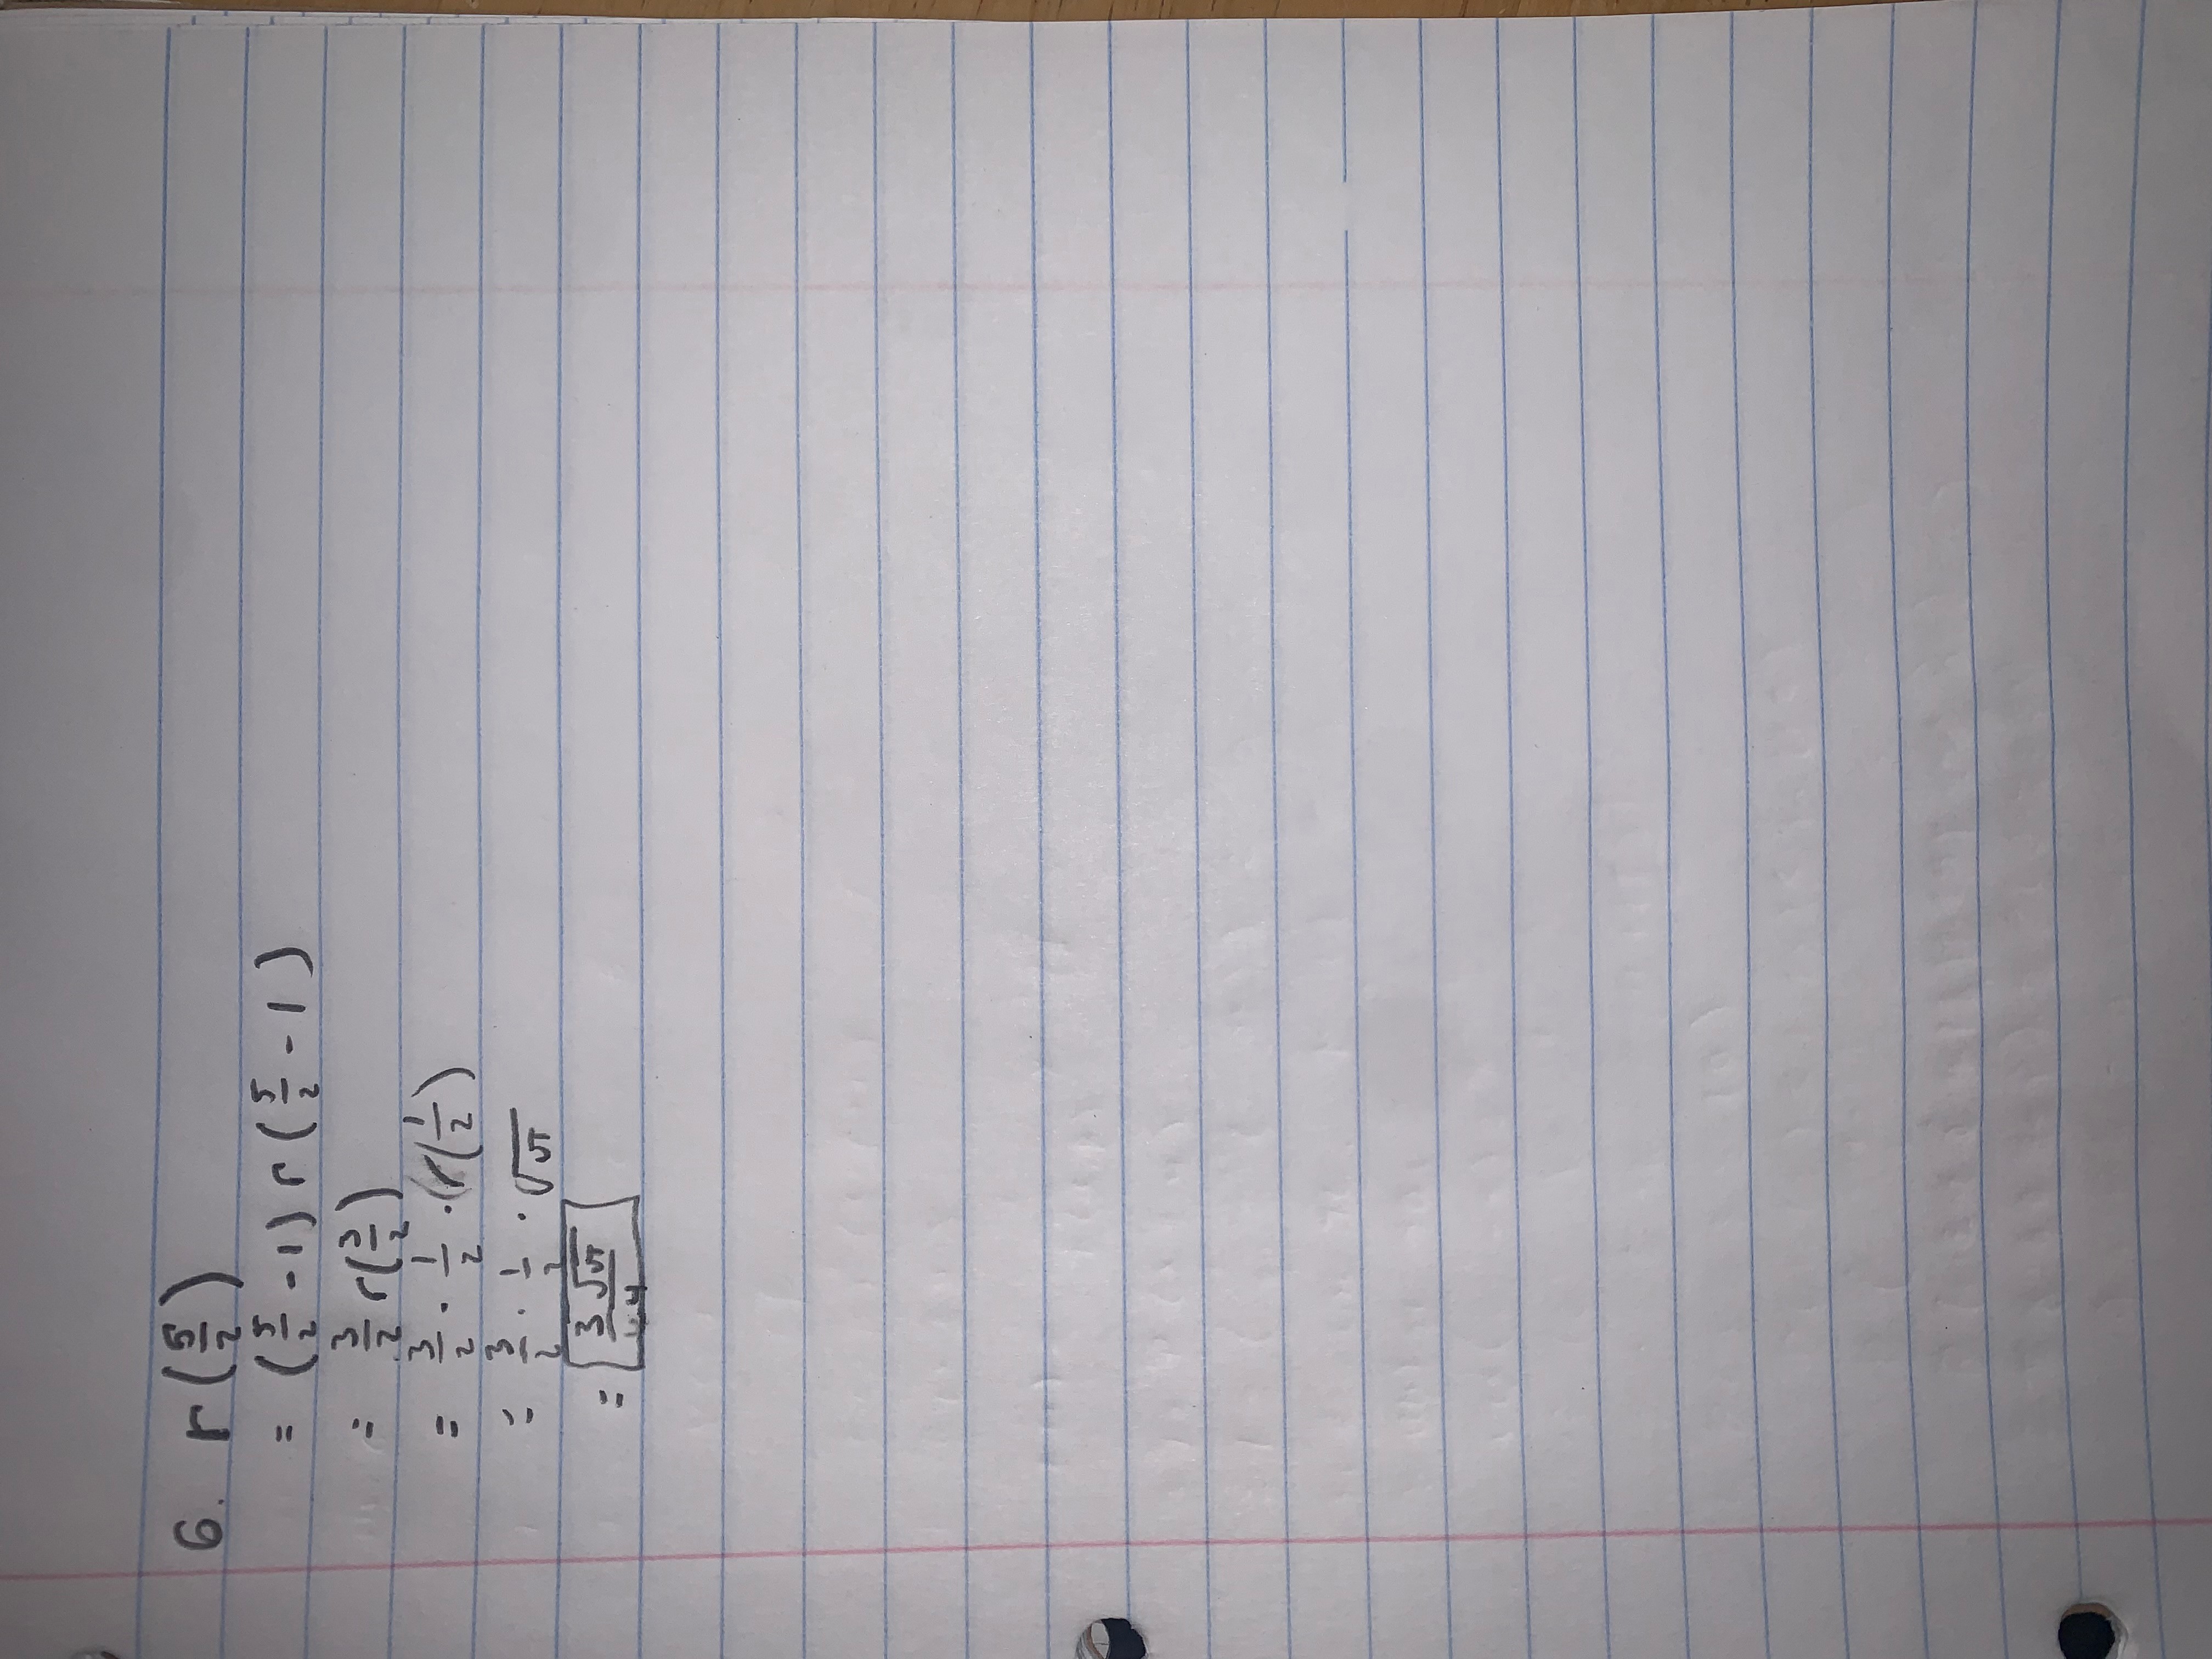 6. Γ(5/2)
= (5/2 - 1) Γ(5/2 - 1)
= 3/2 Γ(3/2)
= 3/2 · 1/2 · Γ(1/2)
= 3/2 · 1/2 · √π
= 3√π/4